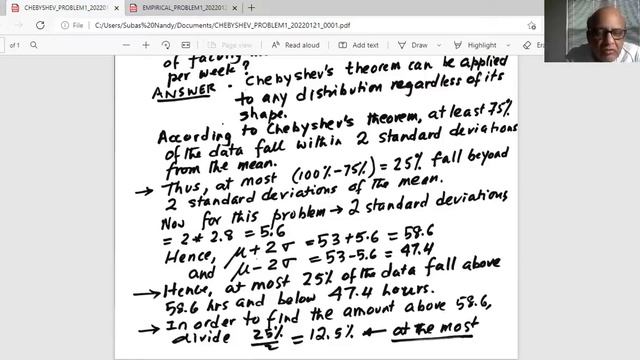 CHEBYSHEV_PROBLEM1_20220121_
EMPIRICAL_PROBLEM1_202201
File
C:/Users/Subas%20Nandy/Documents/CHEBYSHEV_PROBLEM1_20220121_0001.pdf
of 1
Page view
Read aloud
Draw
Highlight
Erase
per week?
ANSWER - Chebyshev's theorem can be applied
to any distribution regardless of its
shape.
According to Chebyshev's theorem, at least 75%
of the data fall within 2 standard deviations
from the mean.
→ Thus, at most (100%-75%) = 25% fall beyond
2 standard deviations of the mean.
Now for this problem → 2 standard deviations
= 2 * 2.8 = 5.6
Hence, μ+2σ = 53+5.6 = 58.6
and μ-2σ = 53-5.6 = 47.4
→ Hence, at most 25% of the data fall above
58.6 hrs and below 47.4 hours.
→ In order to find the amount above 58.6,
divide 25%/2 = 12.5% ← at the most